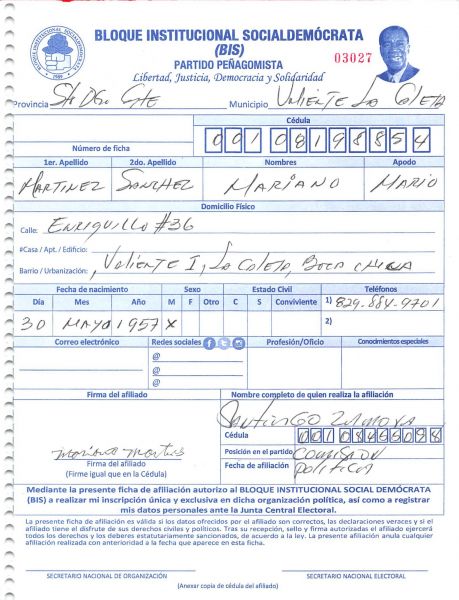 BLOQUE INSTITUCIONAL SOCIALDEMÓCRATA
(BIS)
PARTIDO PEÑAGOMISTA
03027
Libertad, Justicia, Democracia y Solidaridad
Provincia Sto Dgo Este Municipio Valiente La Caleta
Cédula
Número de ficha 001 0819885 4
1er. Apellido 2do. Apellido Nombres Apodo
MARTINEZ SANCHEZ MARIANO MARIO
Domicilio Físico
Calle: ENRIQUILLO #36
#Casa / Apt. / Edificio:
Barrio / Urbanización: Valiente I, La Caleta, Boca Chica
Fecha de nacimiento Sexo Estado Civil Teléfonos
Día Mes Año M F Otro C S Conviviente 1) 829-884-9701
30 MAYO 1957 X 2)
Correo electrónico Redes sociales Profesión/Oficio Conocimientos especiales
@
@
@
Firma del afiliado Nombre completo de quien realiza la afiliación
Santiago Zamora
Cédula 001 0845509 8
Posición en el partido COMISION
Firma del afiliado Fecha de afiliación POLITICA
(Firme igual que en la Cédula)
Mediante la presente ficha de afiliación autorizo al BLOQUE INSTITUCIONAL SOCIAL DEMÓCRATA
(BIS) a realizar mi inscripción única y exclusiva en dicha organización política, así como a registrar
mis datos personales ante la Junta Central Electoral.
La presente ficha de afiliación es válida si los datos ofrecidos por el afiliado son correctos, las declaraciones veraces y si el
afiliado tiene el disfrute de sus derechos civiles y políticos. Tras su recepción, sello y firma autorizadas el afiliado ejercerá
todos los derechos y los deberes estatutariamente sancionados, de acuerdo a la ley. La presente afiliación anula cualquier
afiliación realizada con anterioridad a la fecha que aparece en esta ficha.
SECRETARIO NACIONAL DE ORGANIZACIÓN SECRETARIO NACIONAL ELECTORAL
(Anexar copia de cédula del afiliado)